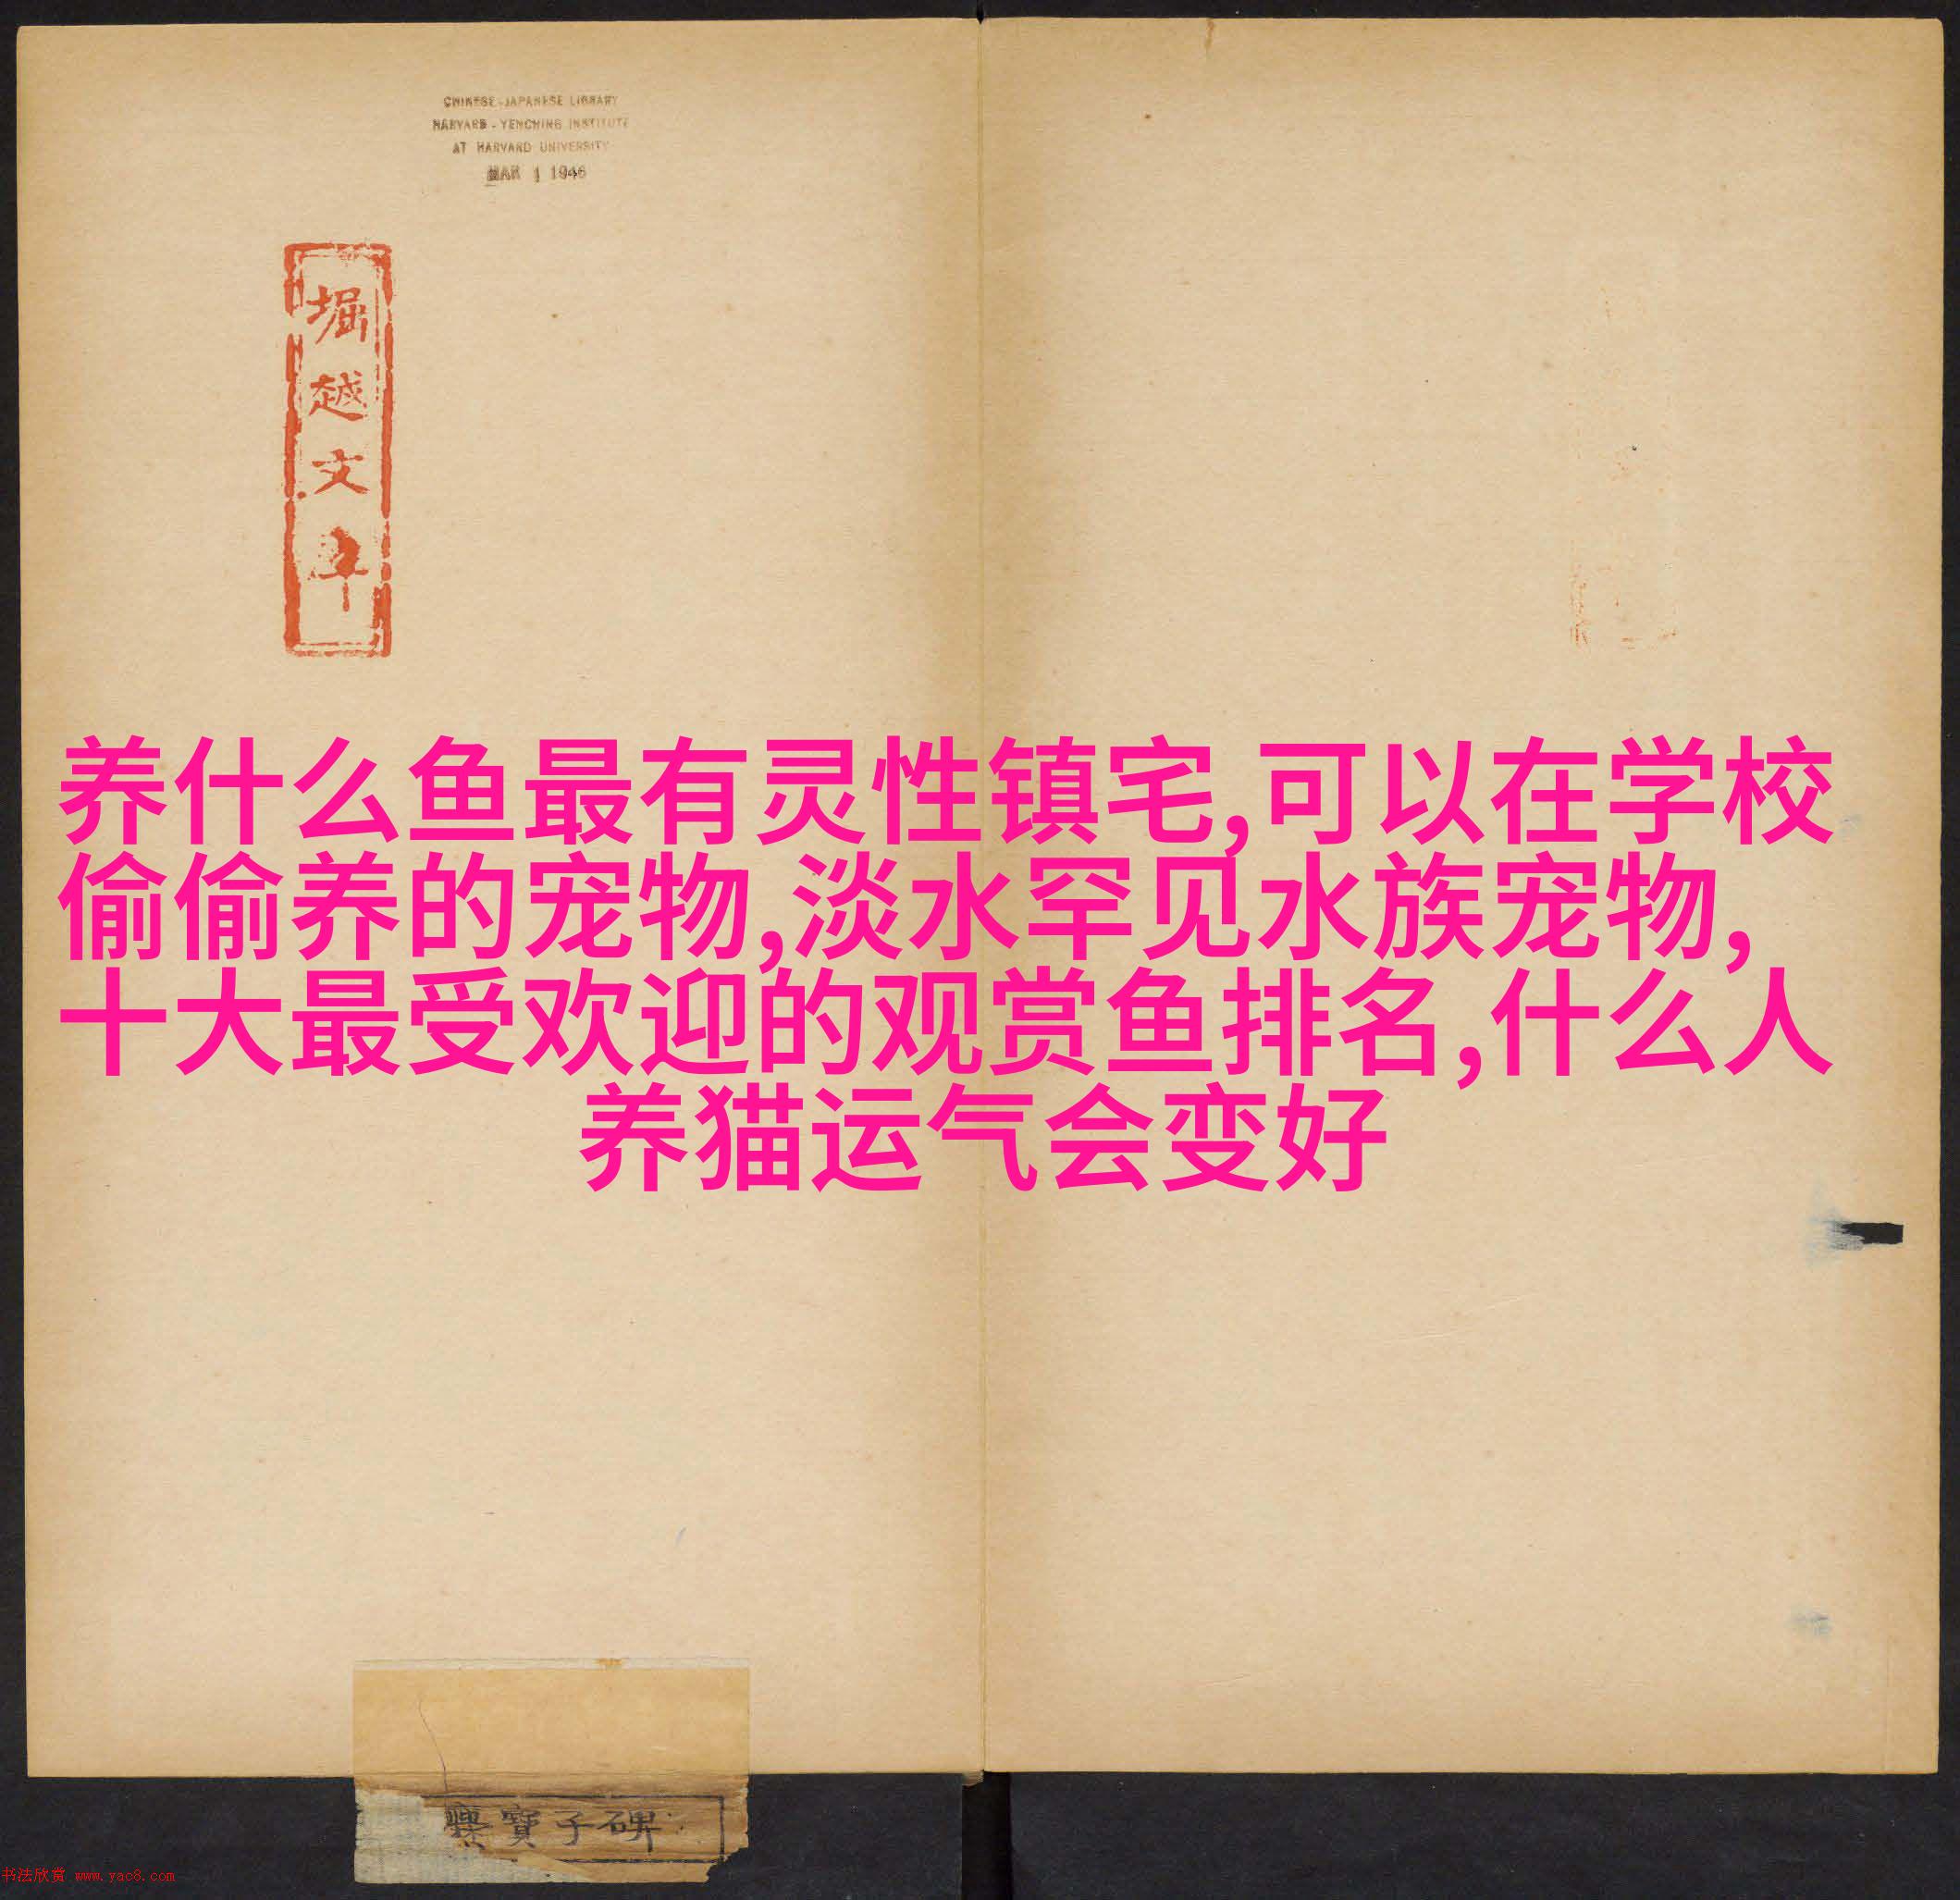 CHINESE-JAPANESE LIBRARY
HARVARD-YENCHING INSTITUTE
AT HARVARD UNIVERSITY
MAR 1 1946
堀越文
养什么鱼最有灵性镇宅,可以在学校
偷偷养的宠物,淡水罕见水族宠物,
十大最受欢迎的观赏鱼排名,什么人
养猫运气会变好
爨寶子碑
书法欣赏 www.yac8.com